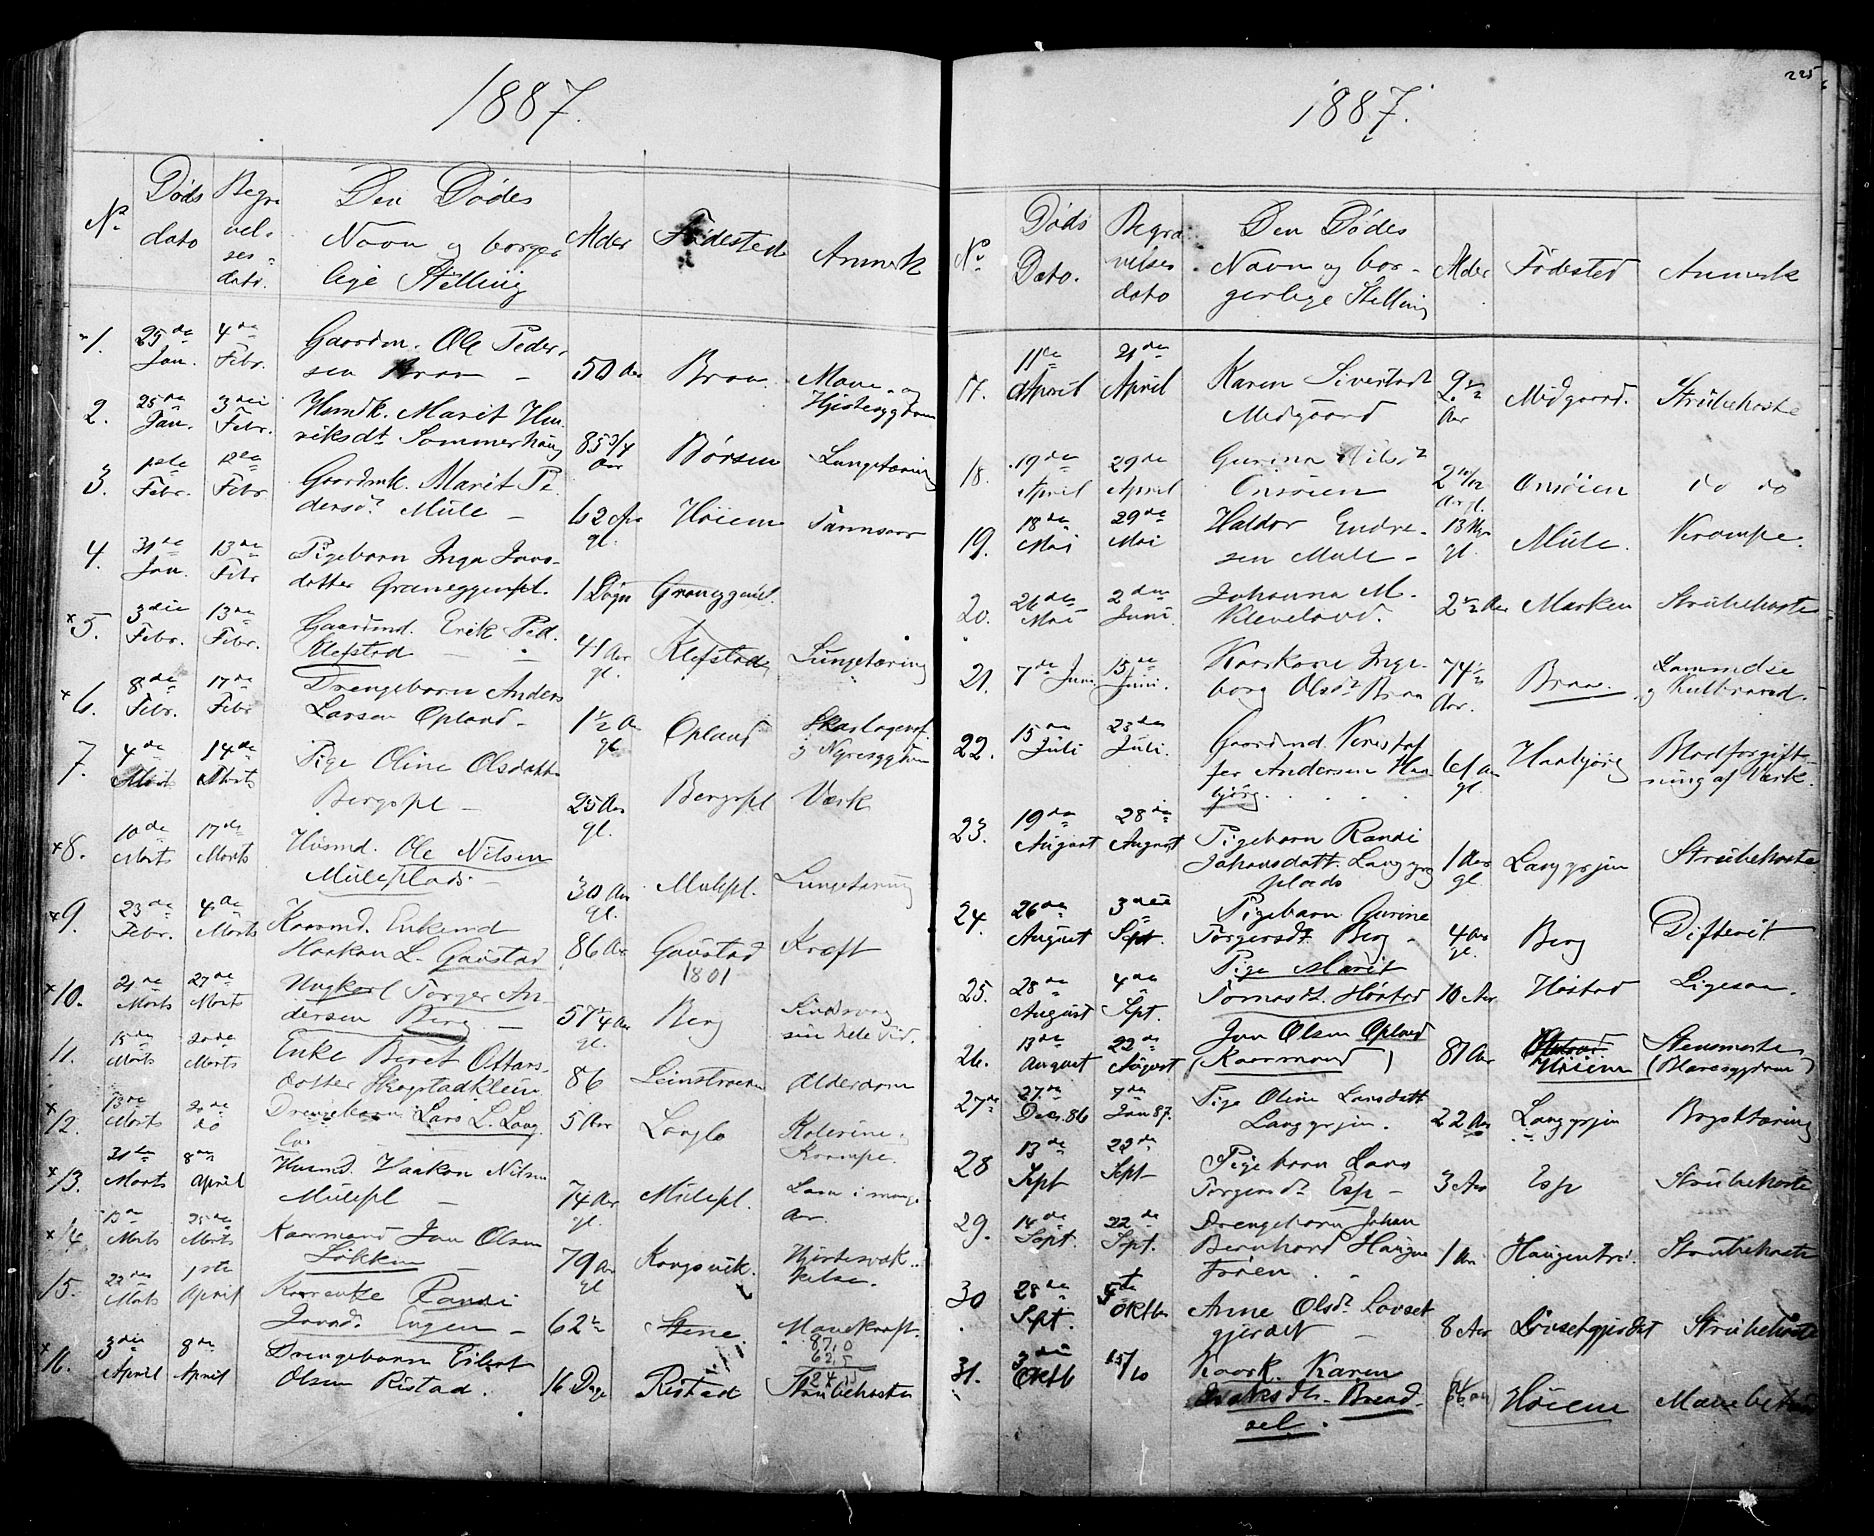 1887.
No
Døds
dato
Begra
vel-
ses-
dato.
Den Dødes
Navn og borger
lige Stilling
Alder
Fødested
Anmerk
1. 29de Jan. 4de Febr. Gaardm. Ole Peder-
sen Braa — 50 Aar Braa Mave- og
Hjertesygdom
2. 25de Jan. 3die Febr. Kaardk. Marit Hen
riksdt. Sommerhaug 85 3/4 Aar Børsen Lungetæring
3. 1ste Febr. 12te Febr. Gaardmk. Marit Pe
dersdt. Mule — 62 Aar gl. Høiem
4. 31de Jan. 13de Febr Pigebarn Inga Jons-
datter Graneggenpl. 1 Døgn Graneggenpl.
5. 3die Febr. 13de Febr. Gaardmd. Erik Ped.
Klefstad — 41 Aar gl. Klefstad Lungetæring
6. 8de Febr. 17de Febr Drengebarn Anders
Larsen Opland — 1 1/2 A gl. Opland Skarlagensf.
og Nyresygdom
7. 4de Marts 14de Marts Pige Oline Olsdatter
Bergspl — 25 Aar gl. Bergspl Værk
8. 10de Marts 17de Marts Husmd. Ole Nilsen
Muleplads — 30 Aar gl. Mulepl. Lungetæring
9. 23de Febr. 4de Marts Kaarmd. Enkemd
Haakon L. Gaustad 86 Aar Gaustad
1801 Kræft
10. 21de Marts 27de Marts Ungkarl Torger An-
dersen Berg — 57 1/4 Aar gl. Berg Sindsvag
sin hele Tid.
11. 15de Marts 20de Marts Enke Beret Ottars-
datter Skogstadkleiv 86 Leinstranden Alderdom
12. 13de Marts 20de do Drengebarn Lars L. Lang
lo 5 Aar Langlo Kolerine og
Krampe.
13. 31te Marts 8de April Husmd. Haakon Nilsen
Mulepl — 74 Aar gl. Mulepl. Lam i mange
Aar.
14 15de Marts 25de Marts Kaarmand Jon Olsen
Løkken — 79 Aar gl Kongsvik. Hjertesvæk-
kelse.
15. 22des Marts 1ste April Kaarenke Randi
Jonsd. Engen — 62 1/2 Stene. Mavekræft.
87,0
62,5
24,5
16. 3die April 8de April Drengebarn Eilert
Olsen Ristad. 16 Dage Ristad Strubehoste
225
1887.
No
Døds
Dato.
Begra
velses
dato
Den Dødes
Navn og bor-
gerlige Stilling
Alder
Fødested
Anmerk
17. 11te April 21de April Karen Sivertsdt
Medgaard 9 1/2 Aar Midgaard. Strubehoste
18. 19de April 29de April Gurina Nilsdt
Onsøien 2 10/12 Aar gl. Onsøien do do
19. 18de Mai 29de Mai Haldor Endre-
sen Mule — 13 Uger gl. Mule. Krampe.
20. 26de Mai 2den Juni Johanna M.
Kleveland. 2 1/2 Aar Marken Strubehoste
21. 7de Juni 15de Juni. Kaarkone Inge-
borg Olsdt Braa 74 1/2 Aar. Braa. Lammelse
og Kuldbrand.
22. 15de Juli 23de Juli. Gaardmd. Kristof
fer Andersen Haa
bjørg. 61 Aar gl. Haabjørg Blodforgift-
ning af Værk.
23. 19de August 28de August Pigebarn Randi
Johansdatt. Langgrj
plads 1 Aar gl. Langgrjin Strubehoste
24. 26de August 3die Sept. Pigebarn Gurine
Torgersdt. Berg — 4 Aar gl. Berg Difterit
25. 28de August 4de Sept. Pige Marit
Tomasdt. Høstad 10 Aar. Høstad Ligesaa.
26. 13de August 22de August Jon Olsen Opland
(Kaarmand) 81 Aar Høiem Stensmerte
(Blæresygdom)
27de 27de Decr. 86 7de Jan 87. Pige Oline Larsdatt
Langgrjin. 22 Aar Langgrjin Brysttæring
28 13de Sept 22de Sept Pigebarn Lars
Torgersdt. Esp — 3 Aar Esp Strubehoste
29. 14de Sept. 22de Sept. Drengebarn Johan
Bernhard Haugen
trøen. 1 Aar Haugentrø. Strubehoste
30 28de Sept. 5te Oktbr Anne Olsdt. Lovset
gjerdet — 8 Aar Lovsetgjerdet Strubehoste
31. 3die Oktb 15/10 Kaark. Karen
Isaksdt. Bread-
vel. 66 Aar Høiem